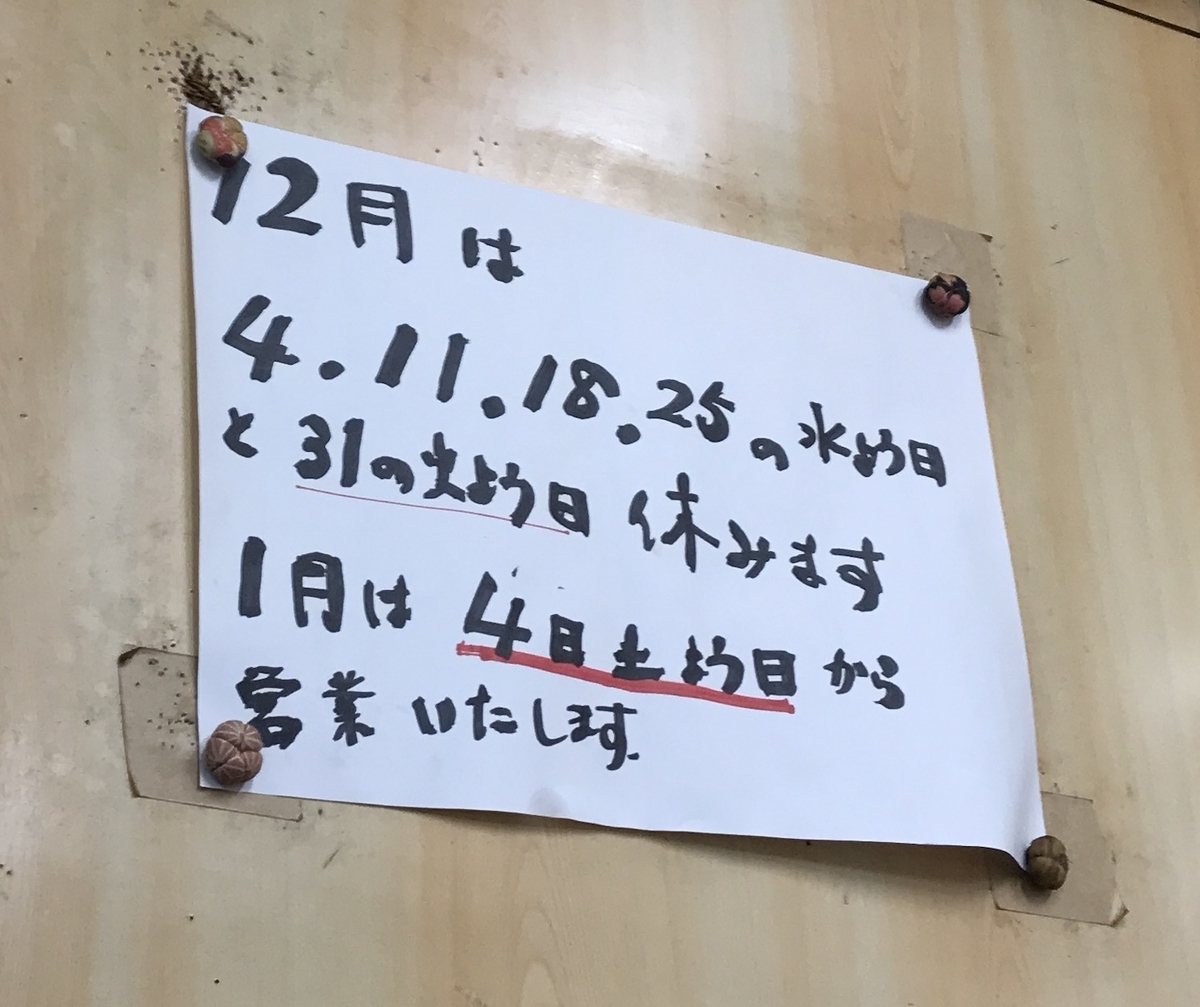 12月は
4.11.18.25の水よう日
と31の火よう日 休みます
1月は 4日土よう日から
営業いたします.